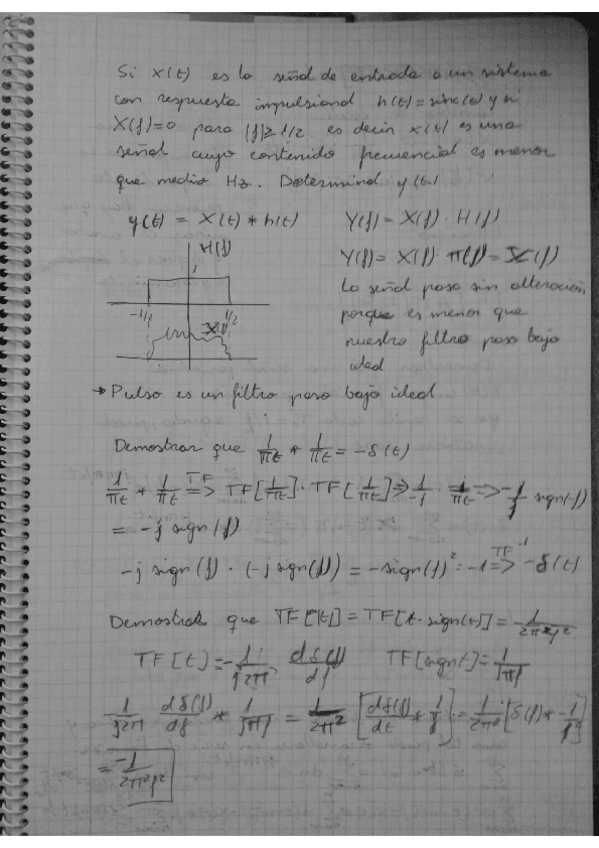 Si x(t) es la señal de entrada a un sistema
con respuesta impulsional h(t)=sinc(t) y si
X(f)=0 para |f|≥1/2 es decir x(t) es una
señal cuyo contenido frecuencial es menor
que medio Hz. Determinad y(t)
y(t) = X(t) * h(t)    Y(f) = X(f) · H(f)
H(f)
1
Y(f)= X(f)· π(f) = X(f)
La señal pasa sin alteración
-1/2 1/2
porque es menor que
X(f)
nuestro filtro paso bajo
ideal
→ Pulso es un filtro paso bajo ideal
Demostrar que 1/πt * 1/πt = -δ(t)
1/πt * 1/πt TF=> TF[1/πt] · TF[1/πt] => 1/-j · 1/πt => -1/j sign(f)
= -j sign(f)
-j sign(f) · (-j sign(f)) = -sign(f)² = -1 TF⁻¹=> -δ(t)
Demostrad que TF[|t|] = TF[t·sign(t)] = -1/2π²f²
TF[t] = -1/j2π dδ(f)/df    TF[sign t] = 1/jπf
1/j2π dδ(f)/df * 1/jπf = 1/2π² [dδ(f)/dt * 1/f] = 1/2π² [δ(f) * -1/f²]
= -1/2π²f²